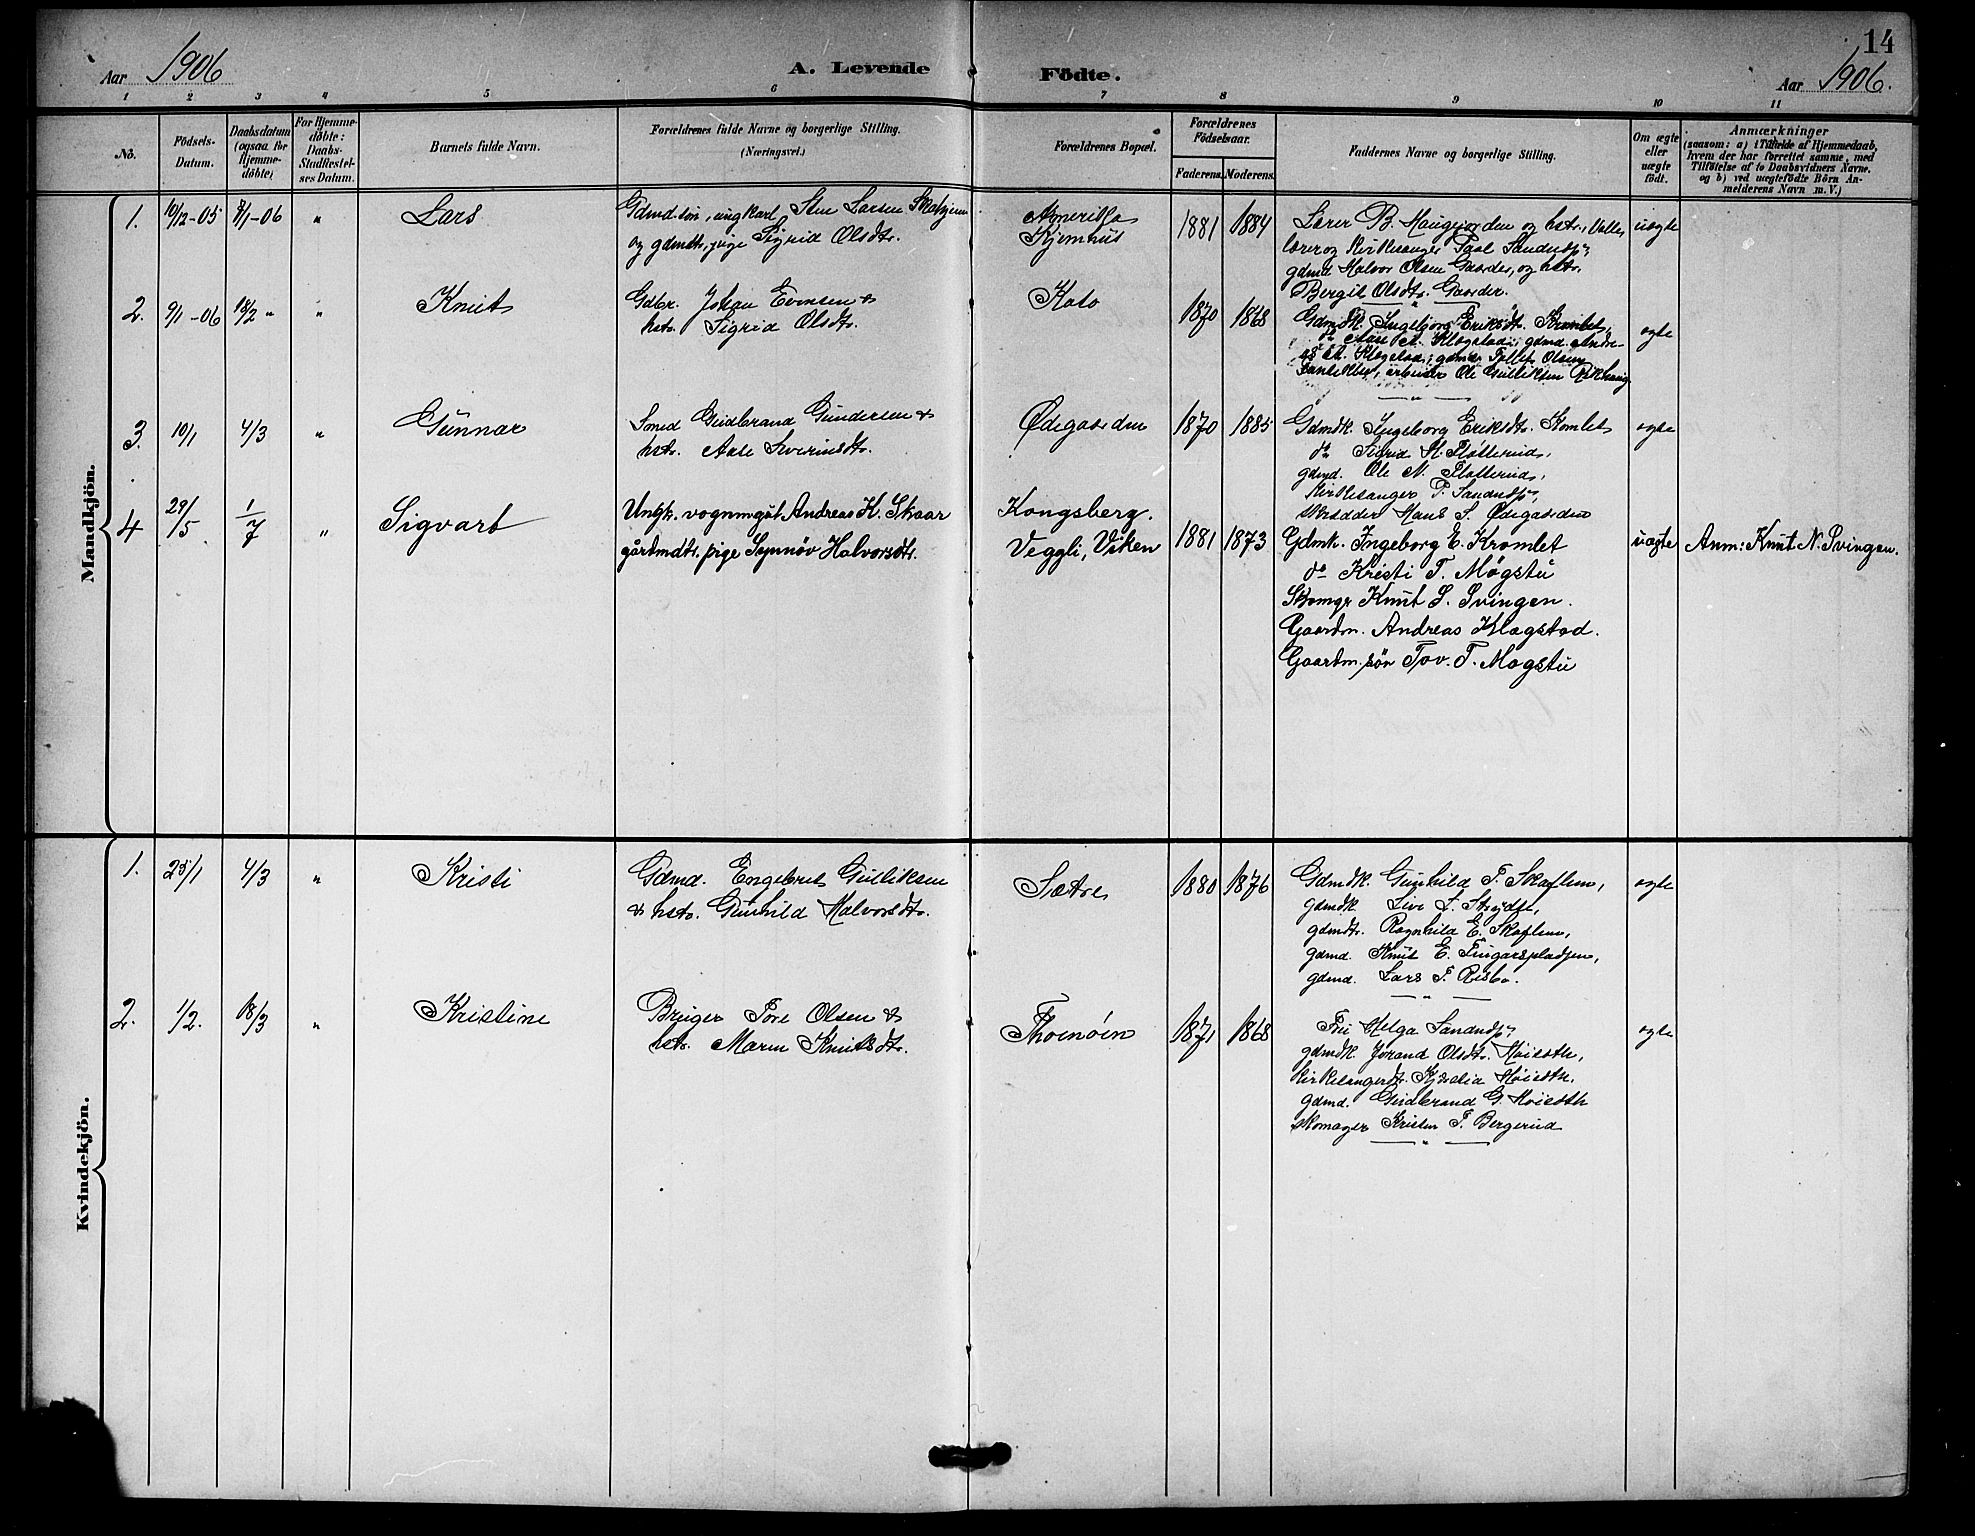 14
Aar 1906
A. Levende Födte.
Aar 1906.
1 2 3 4 5 6 7 8 9 10 11
No.
Födsels-Datum.
Daabsdatum (ogsaa for Hjemme-döbte)
For Hjemme-döbte: Daabs-Stadfæstel-ses Datum.
Barnets fulde Navn.
Forældrenes fulde Navne og borgerlige Stilling.
(Næringsvei.)
Forældrenes Bopæl.
Forældrenes Födselsaar.
Faderens. Moderens.
Faddernes Navne og borgerlige Stilling.
Om ægte eller uægte födt.
Anmærkninger
(saasom: a) i Tilfælde af Hjemmedaab,
hvem der har forrettet samme, med
Tilföielse af to Daabsvidners Navne.
og b) ved uægtefödte Börn An-
melderens Navn m. V.)
Mandkjön.
1. 10/12-05 8/1-06 " Lars
Gdmd sön, ungkarl Sten Larsen
og gdmdtr, pige Sigrid Olsdtr.
Amerika
Kjemhus
1881 1884
Lærer B. Haugjorden og hstr., Valle,
lærer og kirkesanger Paal
gdmd Halvor Olsen Gaarder, og hstr.
Bergit Olsdtr. Gaarder.
uægte
2. 9/1-06 18/2 " " Knut
Gdbr. Johan Evensen &
hstr. Sigrid Olsdtr.
Kato
1870 1868
Gdmdk. Ingebjørg Eriksdtr. Kromlet,
do Aase A. Klægstad, gdmd. Andre-
as A. Klægstad, gdmd Tollef Olsen
arbeider Ole Gulliksen
ægte
3. 10/1 4/3 " Gunnar
Smed Gudbrand Gundersen &
hstr. Aase Sverinsdtr.
Ødegaarden
1870 1885
Gdmdk. Ingeborg Eriksdtr. Komlet
do Sigrid H. Fløtterud,
gdmd. Ole N. Fløtterud,
kirkesanger P.
skrædder Hans S. Ødegaarden
ægte
4 29/5 1/7 " Sigvart
Ungk. vognmgut Andreas K. Skaar
gårdmdtr. pige Synnøv Halvorsdtr.
Kongsberg.
Veggli, Viken
1881 1873
Gdmk. Ingeborg E. Kromlet
do Kristi T. Møgstu
Skomgr Knut S. Svingen.
Gaardm. Andreas Klægstad.
Gaardm. søn Tov. T. Mogstu
uægte
Anm: Knut N. Svingen.
Kvindekjön.
1. 25/1 4/3 " Kristi
Gdmd. Engebret Gulliksen
& hstr. Gunhild Halvorsdtr.
Sætre
1880 1876
Gdmdk. Gunhild T. Skaflem,
gdmdk Live S.
gdmdtr. Ragnhild E. Skaflem,
gdmd. Knut E. Fingarspladsen,
gdmd. Lars T. Risbø.
ægte
2. 1/2. 18/3 " Kristine
Bruger Tore Olsen &
hstr. Maren Knutsdtr.
Thoenøien
1871 1868
Fru Helga
gdmdk. Jorand Olsdtr. Høiseth,
kirkesangerdtr. Høiseth,
gdmd. Gudbrand G. Høiseth
skomager Kristen T. Bergerud
ægte